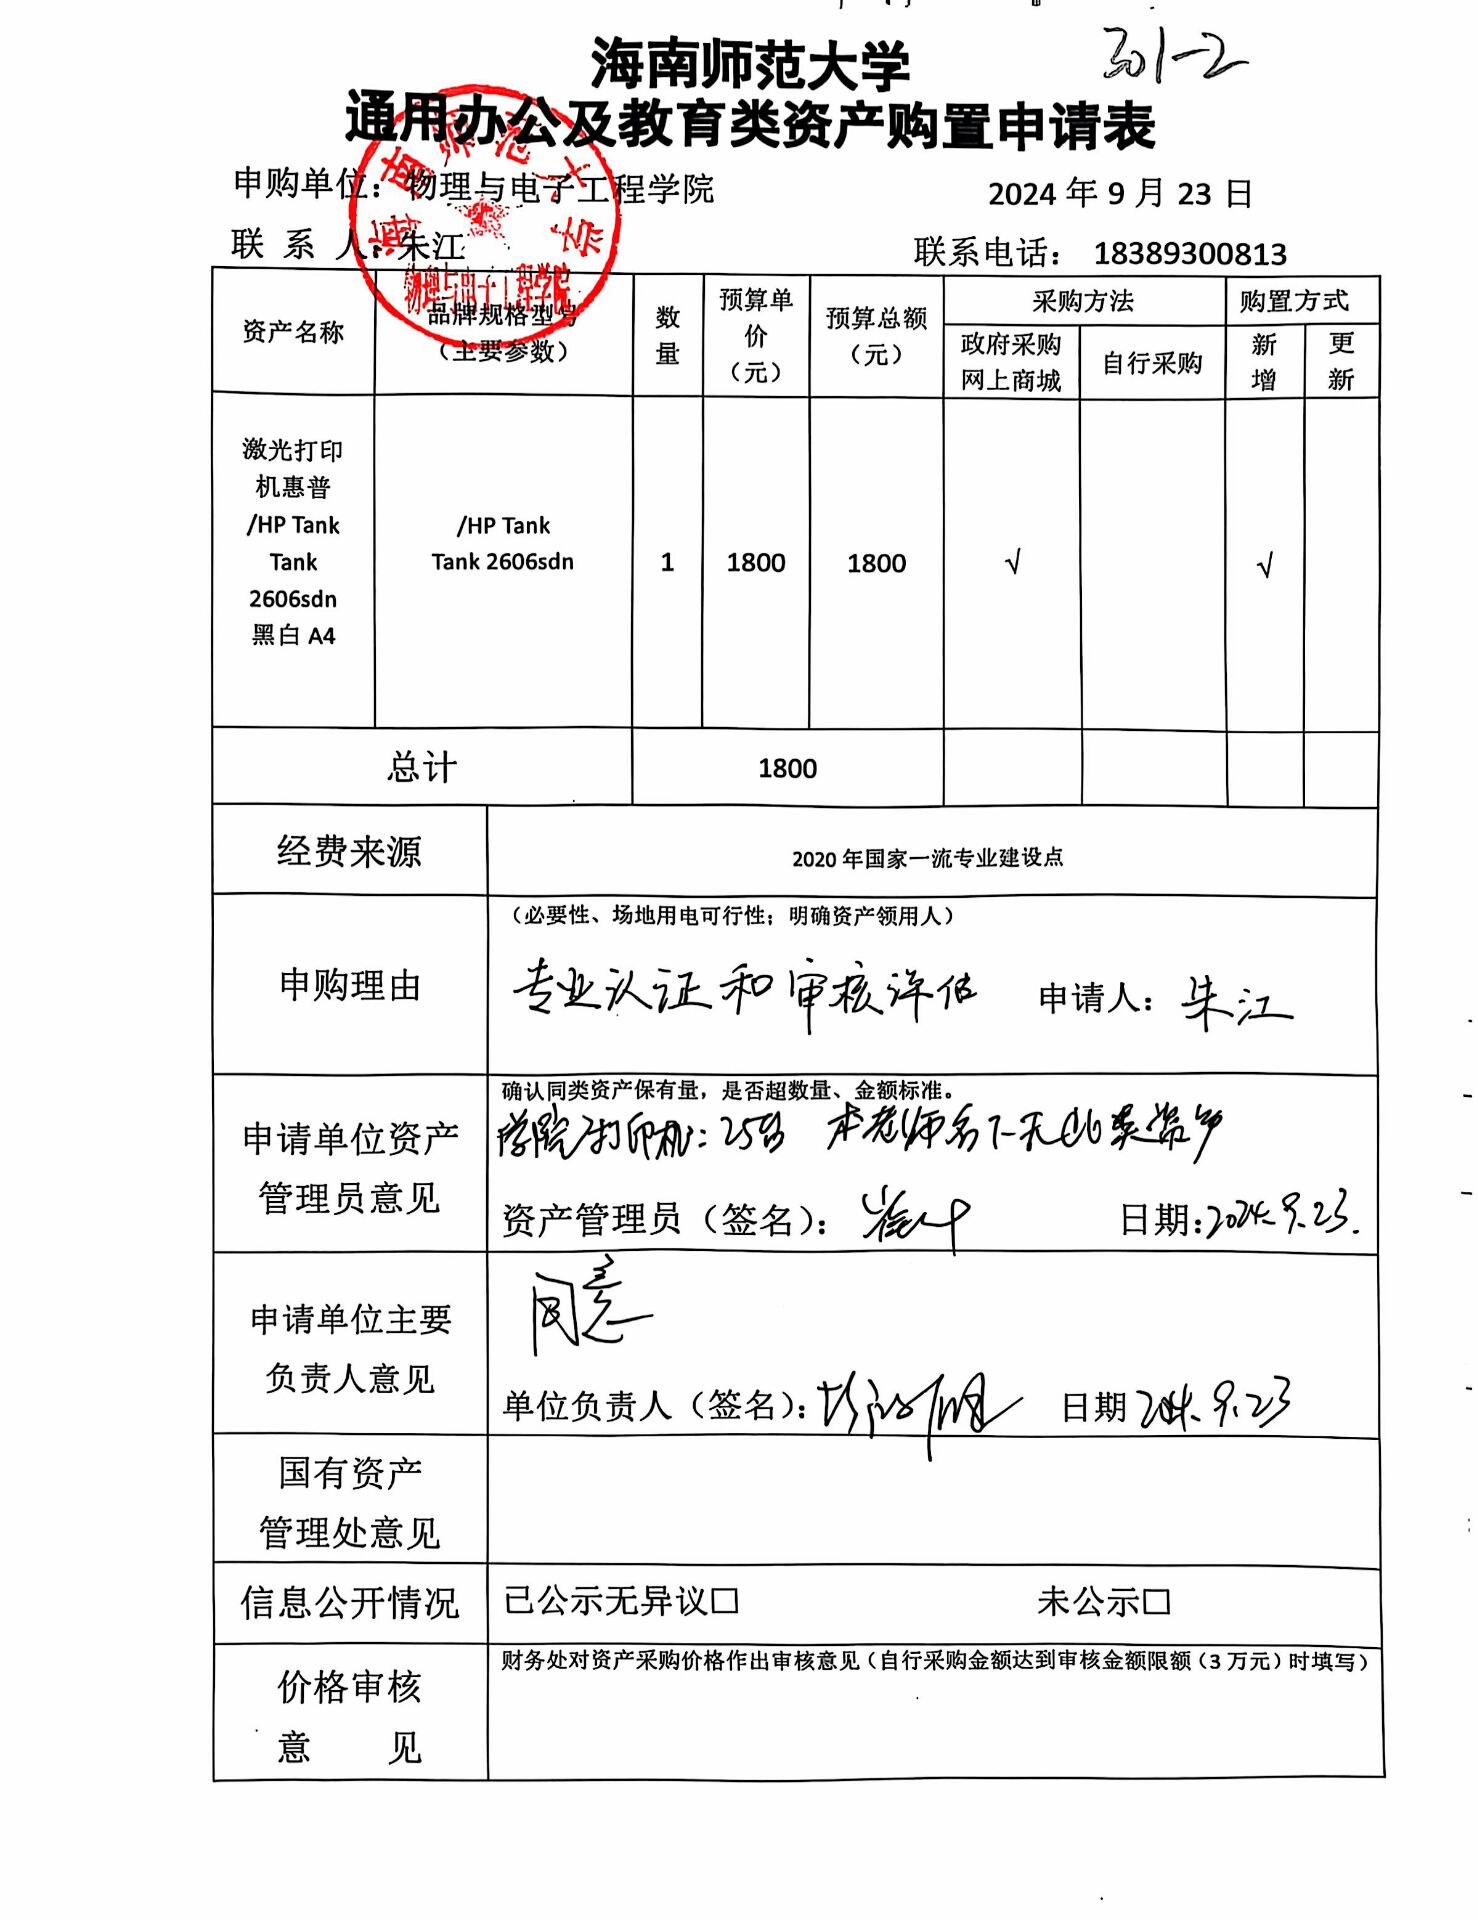 301-2
海南师范大学
通用办公及教育类资产购置申请表
申购单位：物理与电子工程学院 2024 年 9 月 23 日
联 系 人：朱江 联系电话： 18389300813
海南师范大学
物理与电子工程学院
资产名称 品牌规格型号（主要参数） 数量 预算单价（元） 预算总额（元） 采购方法 购置方式
政府采购网上商城 自行采购 新增 更新
激光打印
机惠普
/HP Tank
Tank
2606sdn
黑白 A4
/HP Tank
Tank 2606sdn
1 1800 1800 √ √
总计 1800
经费来源 2020 年国家一流专业建设点
申购理由
（必要性、场地用电可行性；明确资产领用人）
专业认证和审核评估 申请人：朱江
申请单位资产
管理员意见
确认同类资产保有量，是否超数量、金额标准。
学院打印机：25台 朱老师名下无此类资产
资产管理员（签名）： 日期：2024.9.23.
申请单位主要
负责人意见
同意
单位负责人（签名）： 日期 2024.9.23
国有资产
管理处意见
信息公开情况 已公示无异议□ 未公示□
价格审核
意 见
财务处对资产采购价格作出审核意见（自行采购金额达到审核金额限额（3 万元）时填写）